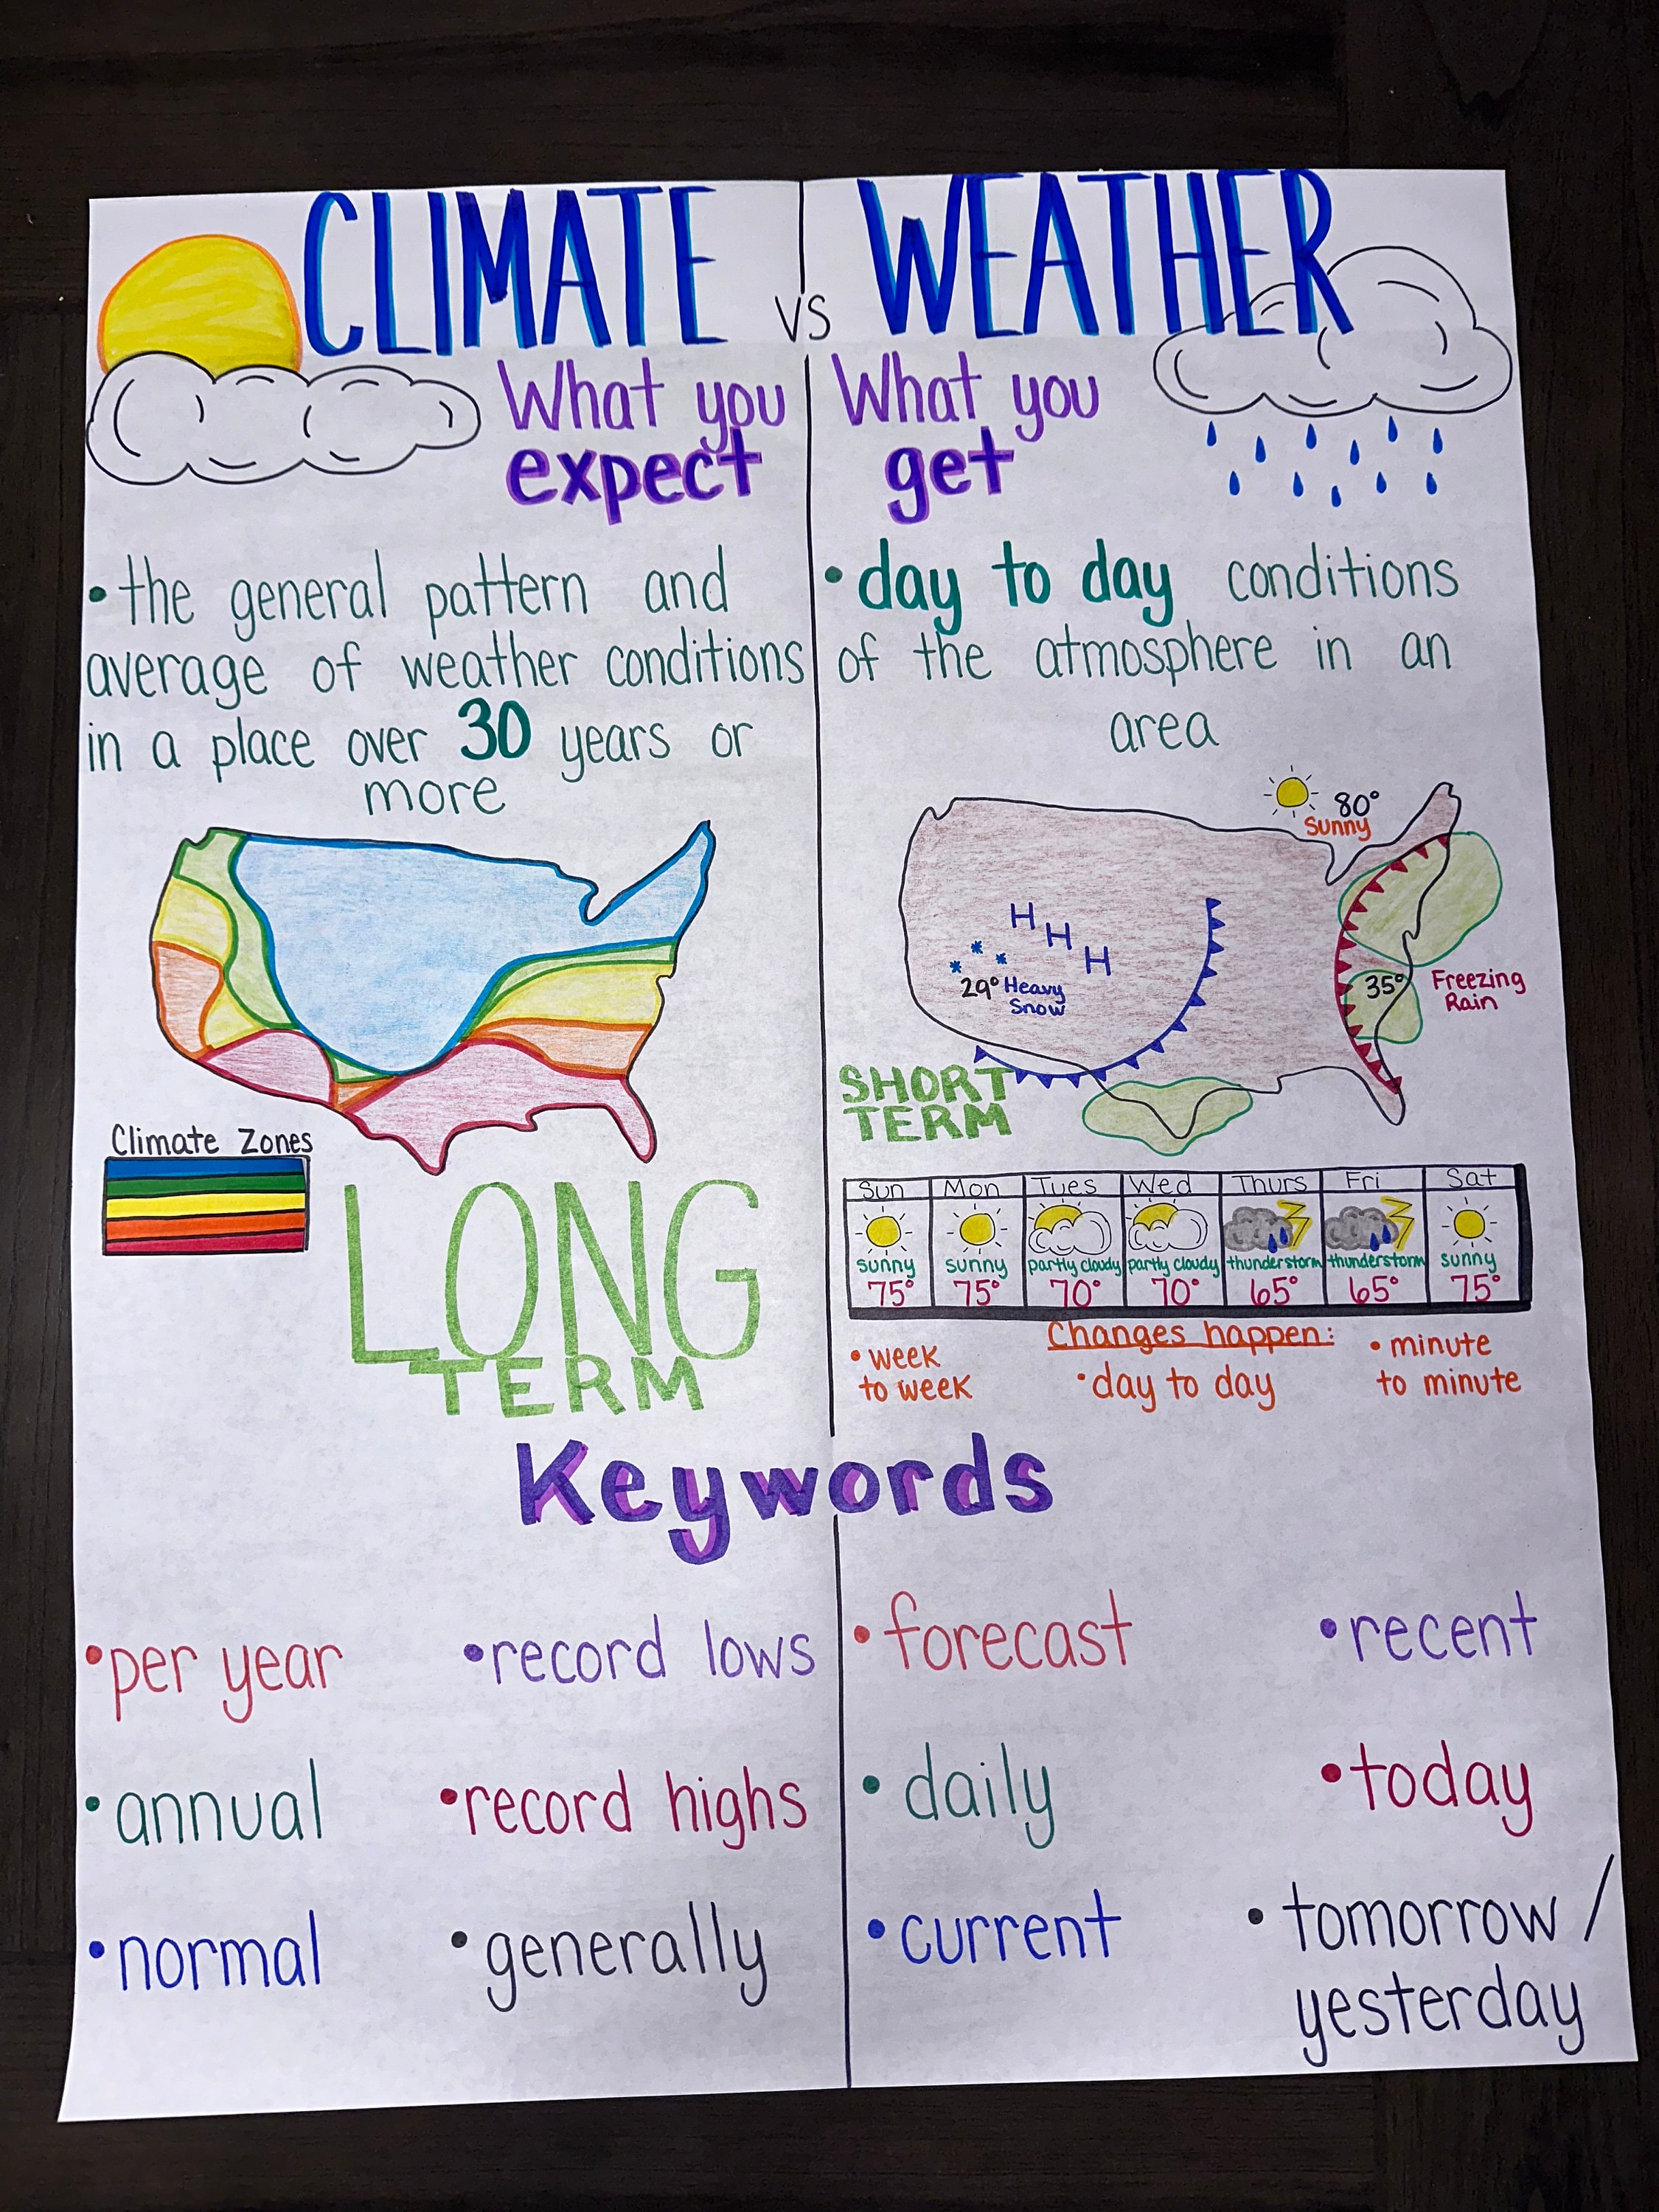 CLIMATE vs WEATHER
What you
expect
• the general pattern and
average of weather conditions
in a place over 30 years or
more
Climate Zones
LONG
TERM
What you
get
• day to day conditions
of the atmosphere in an
area
80°
Sunny
H H H
29° Heavy
Snow
35° Freezing
Rain
SHORT
TERM
Sun Mon Tues Wed Thurs Fri Sat
sunny sunny partly cloudy partly cloudy thunderstorm thunderstorm sunny
75° 75° 70° 70° 65° 65° 75°
Changes happen:
• week
to week
• day to day
• minute
to minute
Keywords
• per year • record lows
• annual • record highs
• normal • generally
• forecast • recent
• daily • today
• current • tomorrow /
yesterday